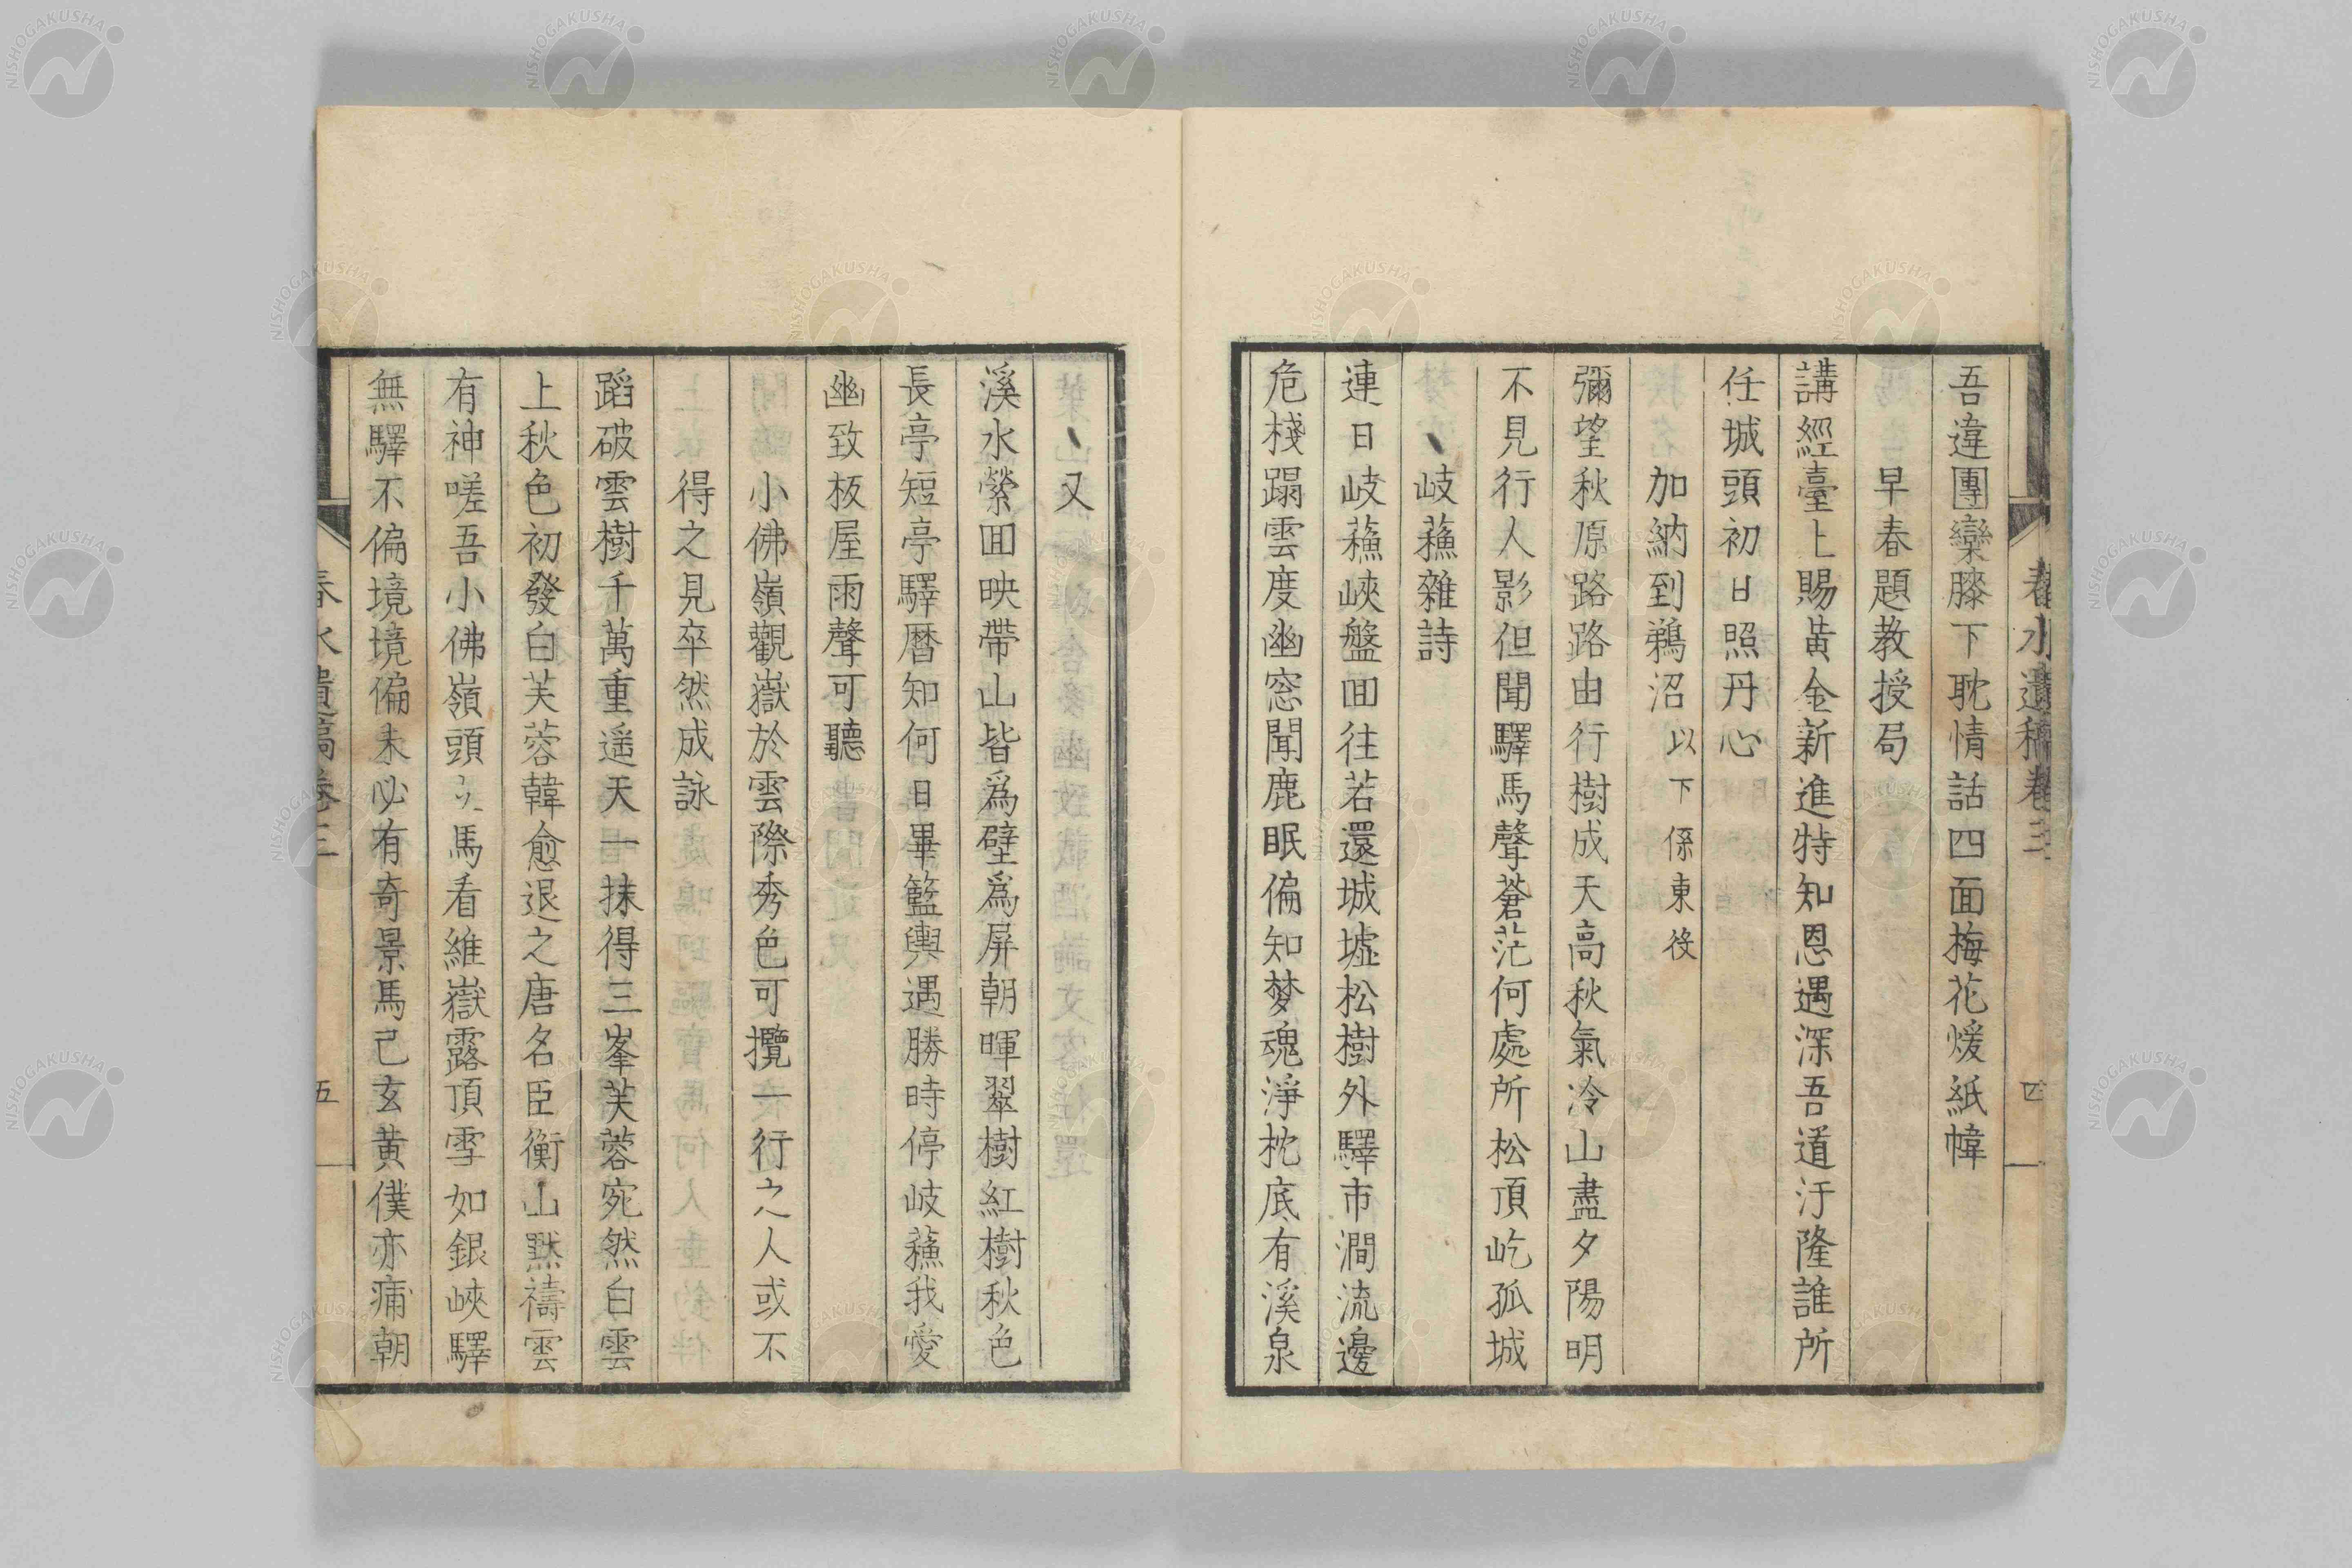 春水遺稿卷三
四
吾違團欒膝下耽情話四面梅花煖紙幃
早春題教授局
講經臺上賜黃金新進特知恩遇深吾道汙隆誰所
任城頭初日照丹心
加納到鵜沼以下係東役
彌望秋原路路由行樹成天高秋氣冷山盡夕陽明
不見行人影但聞驛馬聲蒼茫何處所松頂屹孤城
岐蘓雜詩
連日岐蘓峽盤回往若還城墟松樹外驛市澗流邊
危棧蹋雲度幽窓聞鹿眠偏知梦魂淨枕底有溪泉
又
溪水縈回映帶山皆爲壁爲屏朝暉翠樹紅樹秋色
長亭短亭驛曆知何日畢籃輿遇勝時停岐蘓我愛
幽致板屋雨聲可聽
小佛嶺觀嶽於雲際秀色可攬一行之人或不
得之見卒然成詠
蹈破雲樹千萬重遥天一抹得三峯芙蓉宛然白雲
上秋色初發白芙蓉韓愈退之唐名臣衡山默禱雲
有神嗟吾小佛嶺頭立馬看維嶽露頂雪如銀峽驛
無驛不偏境境偏未必有奇景馬已玄黄僕亦痡朝
春水遺稿卷三
五
NISHOGAKUSHA